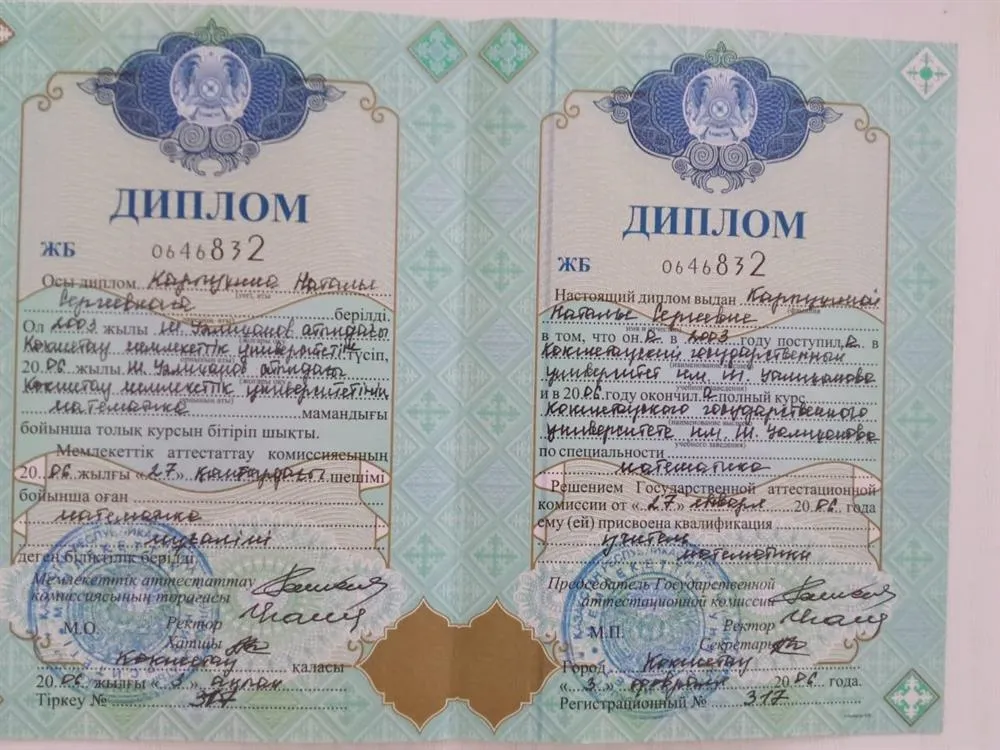 ДИПЛОМ
ЖБ 0646832
Осы диплом Карпухина Наталья
Сергеевнаға
(үсті, аты)
берілді.
Ол 2003 жылы Ш Уәлиханов атындағы
Көкшетау мемлекеттік университетіне түсіп,
20 06 жылы Ш. Уәлиханов атындағы
Көкшетау мемлекеттік университетінің
математика мамандығы
бойынша толық курсын бітіріп шықты.
Мемлекеттік аттестаттау комиссиясының
20 06 жылғы «27» қаңтардағы шешімі
бойынша оған
математика
мұғалімі
деген біліктілік берілді.
Мемлекеттік аттестаттау
комиссиясының төрағасы
Ректор
М.О.
Хатшы
Көкшетау қаласы
20 06 жылғы «3» ақпан
Тіркеу № 317
ДИПЛОМ
ЖБ 0646832
Настоящий диплом выдан Карпухиной
Наталье Сергеевне
в том, что он а в 2003 году поступил а в
Кокшетауский государственный
(наименование высшего)
университет им Ш. Уалиханова
учебного заведения)
и в 20 06 году окончил а полный курс
Кокшетауского государственного
(наименование высшего)
университета им. Ш. Уалиханова
учебного заведения)
по специальности
математика
Решением Государственной аттестационной
комиссии от «27» января 20 06 года
ему (ей) присвоена квалификация
учитель
математики
Председатель Государственной
аттестационной комиссии
Ректор
М.П.
Секретарь
Город Кокшетау
«3» февраля 20 06 года.
Регистрационный № 317